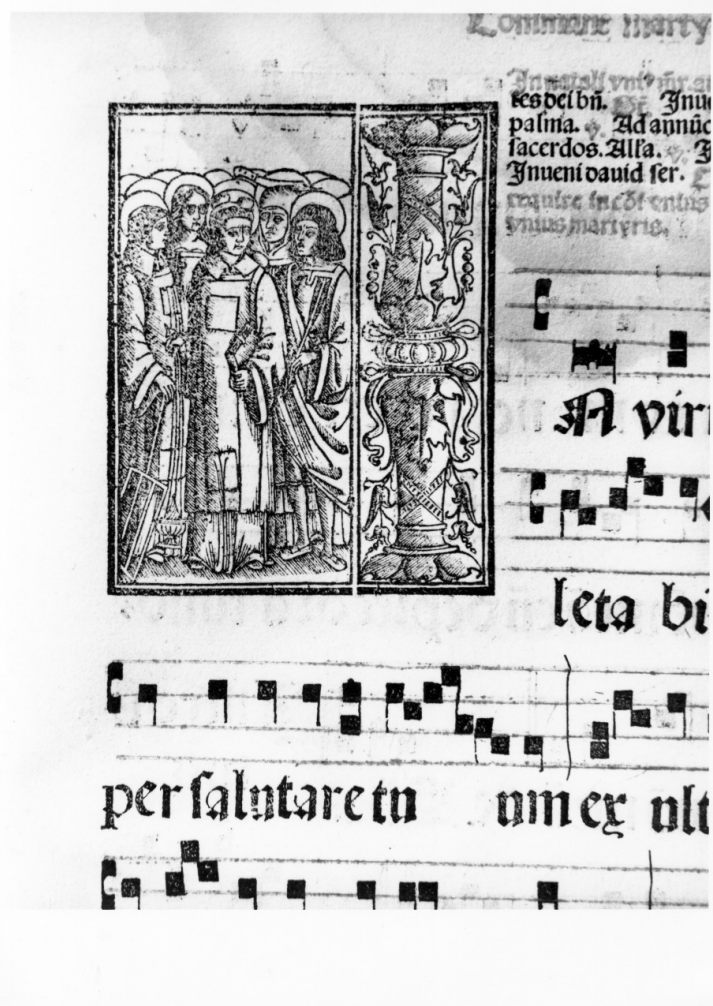 Commune marty
In natali vniꝰ mr̃. a
tes dei bñ. Inue
palma. ℣. Ad annũc
sacerdos. All'a. ℣. I
Inueni dauid ser.
require in cõi vnius
vnius martyris.
N virt
leta bi
per salutare tu um ex ult